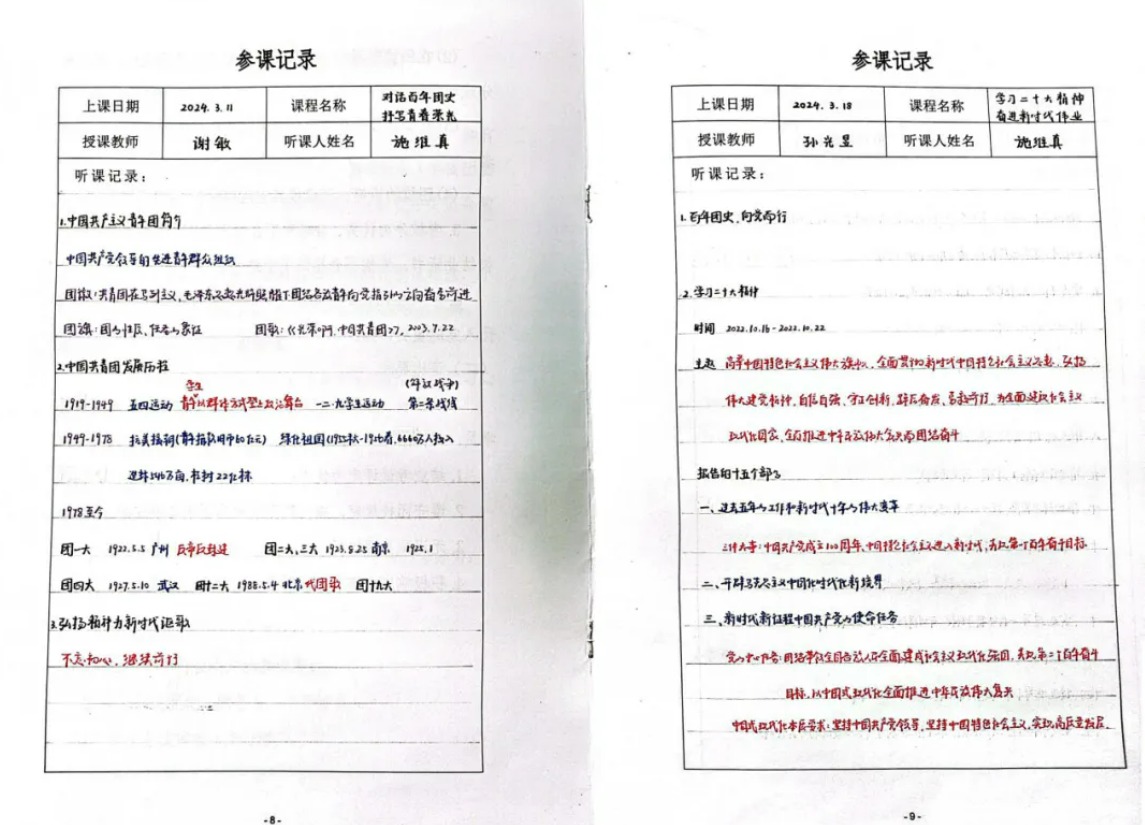 参课记录
上课日期 2024.3.11 课程名称 对话百年团史 抒写青春荣光
授课教师 谢敏 听课人姓名 施维真
听课记录:
1.中国共产主义青年团简介
中国共产党领导的先进青年群众组织
团徽:共青团在马列主义、毛泽东思想光辉照耀下团结各族青年向党指引的方向奋勇前进
团旗:团的标志、的象征 团歌:《光荣啊,中国共青团》,2003.7.22
2.中国共青团发展历程
学生 (解放战争)
1919-1949 五四运动 青年以群体方式登上政治舞台 一二·九学生运动 第二条战线
1949-1978 抗美援朝(青年捐款用币60亿元) 绿化祖国(1955秋-1956春,6660万人投入
造林546万亩,植树22亿株
1978至今
团一大 1922.5.5 广州 反帝反封建 团二大、三大 1923.8.25 南京 1925.1
团四大 1927.5.10 武汉 团十二大 1988.5.4 北京 代团歌 团十九大
3.弘扬精神 为新时代讴歌
不忘初心,继续前行
-8-
参课记录
上课日期 2024.3.18 课程名称 学习二十大精神 奋进新时代伟业
授课教师 孙光昱 听课人姓名 施维真
听课记录:
1.百年团史,向党而行
2.学习二十大精神
时间 2022.10.16-2022.10.22
主题 高举中国特色社会主义伟大旗帜,全面贯彻新时代中国特色社会主义思想,弘扬
伟大建党精神,自信自强、守正创新,踔厉奋发、勇毅前行,为全面建设社会主义
现代化国家、全面推进中华民族伟大复兴而团结奋斗
报告的十五个部分
一、过去五年的工作和新时代十年的伟大变革
三件大事:中国共产党成立100周年,中国特色社会主义进入新时代,实现第一个百年奋斗目标
二、开辟马克思主义中国化时代化新境界
三、新时代新征程中国共产党的使命任务
党的中心任务:团结带领全国各族人民全面建成社会主义现代化强国、实现第二个百年奋斗
目标,以中国式现代化全面推进中华民族伟大复兴
中国式现代化本质要求:坚持中国共产党领导,坚持中国特色社会主义,实现高质量发展,
-9-